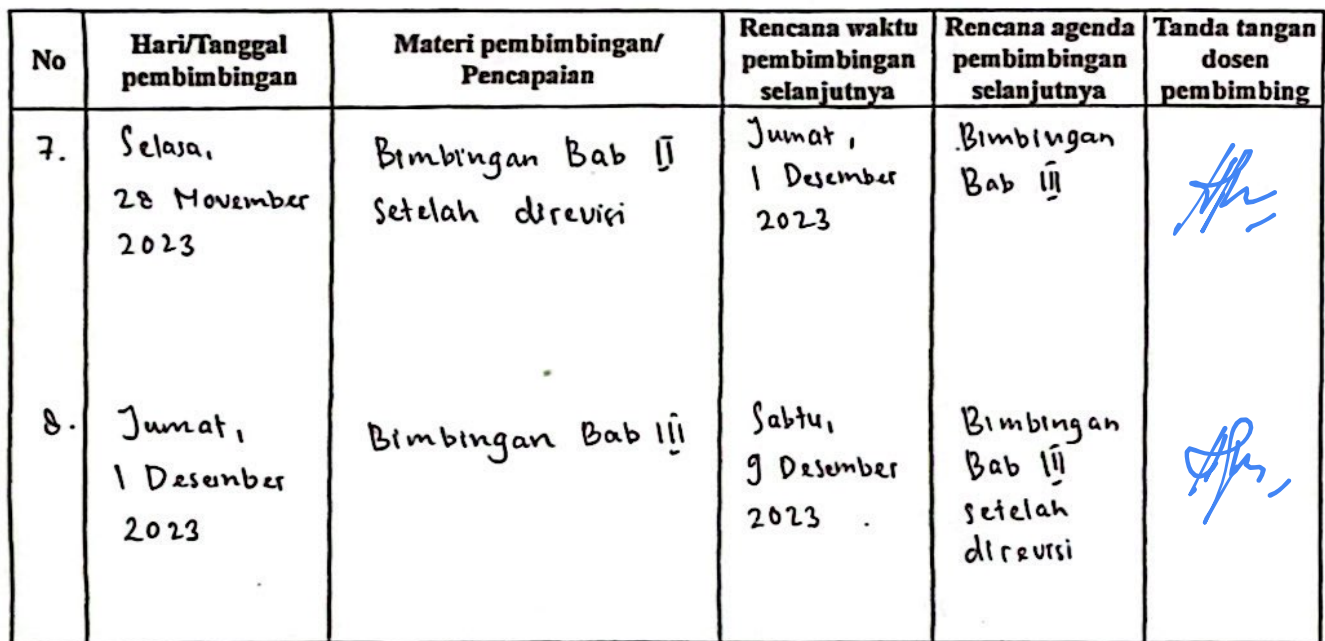 No
Hari/Tanggal
pembimbingan
Materi pembimbingan/
Pencapaian
Rencana waktu
pembimbingan
selanjutnya
Rencana agenda
pembimbingan
selanjutnya
Tanda tangan
dosen
pembimbing
7.
Selasa,
28 November
2023
Bimbingan Bab II
Setelah direvisi
Jumat,
1 Desember
2023
Bimbingan
Bab III
8.
Jumat,
1 Desember
2023
Bimbingan Bab III
Sabtu,
9 Desember
2023
Bimbingan
Bab III
setelah
direvisi